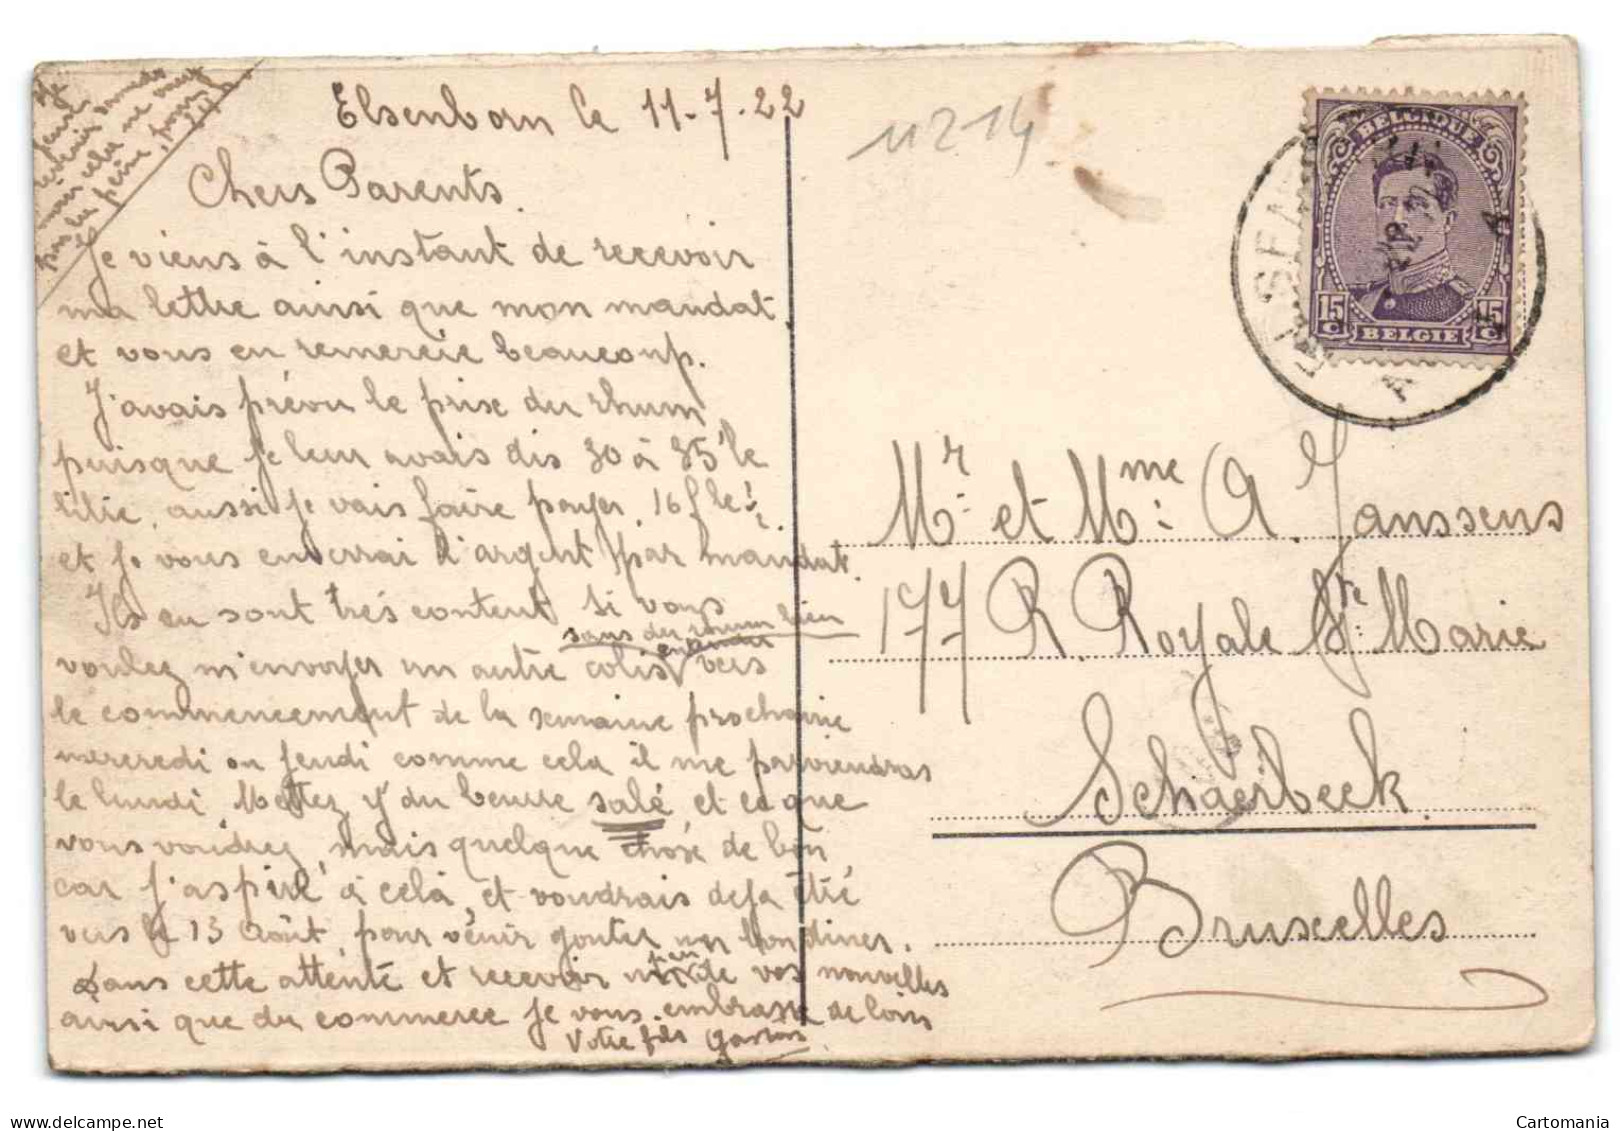 Elsenborn le 11-7-22
Chers Parents.
Je viens à l'instant de recevoir
ma lettre ainsi que mon mandat.
et vous en remercie beaucoup.
J'avais prévu le prix du rhum
puisque je leur avais dis 30 à 35 le
litre, aussi je vais faire payer 16 f le
et je vous enverrai l'argent par mandat.
Ils en sont très content si vous
sans du rhum bien
voulez m'envoyer un autre colis vers
le commencement de la semaine prochaine
mercredi ou jeudi comme cela il me parviendras
le lundi Mettez y du beurre salé et ce que
vous voudrez, mais quelque chose de bon
car j'aspire à celà, et voudrais deja être
vers le 13 Août, pour vénir gouter
Dans cette attente et recevoir vite vos nouvelles
ainsi que du commerce je vous embrasse de loin
Votre fils Gaston
11214
BELGIQUE
15 C
15 C
BELGIE
A
Mr. et Mme. A. Janssens
177 R. Royale Ste. Marie
Schaerbeek.
Bruxelles
Cartomania